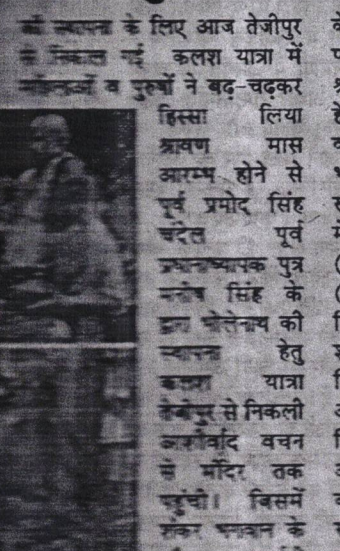 की स्थापना के लिए आज तेजीपुर
से निकाल गई कलश यात्रा में
महिलाओं व पुरुषों ने बढ़-चढ़कर
हिस्सा लिया
श्रावण मास
आरम्भ होने से
पूर्व प्रमोद सिंह
चंदेल पूर्व
प्रधानाध्यापक पुत्र
सिंह के
द्वारा भोलेनाथ की
स्थापना हेतु
कलश यात्रा
तेजीपुर से निकली
आशीर्वाद वचन
से मंदिर तक
पहुंची। जिसमें
शंकर भगवान के